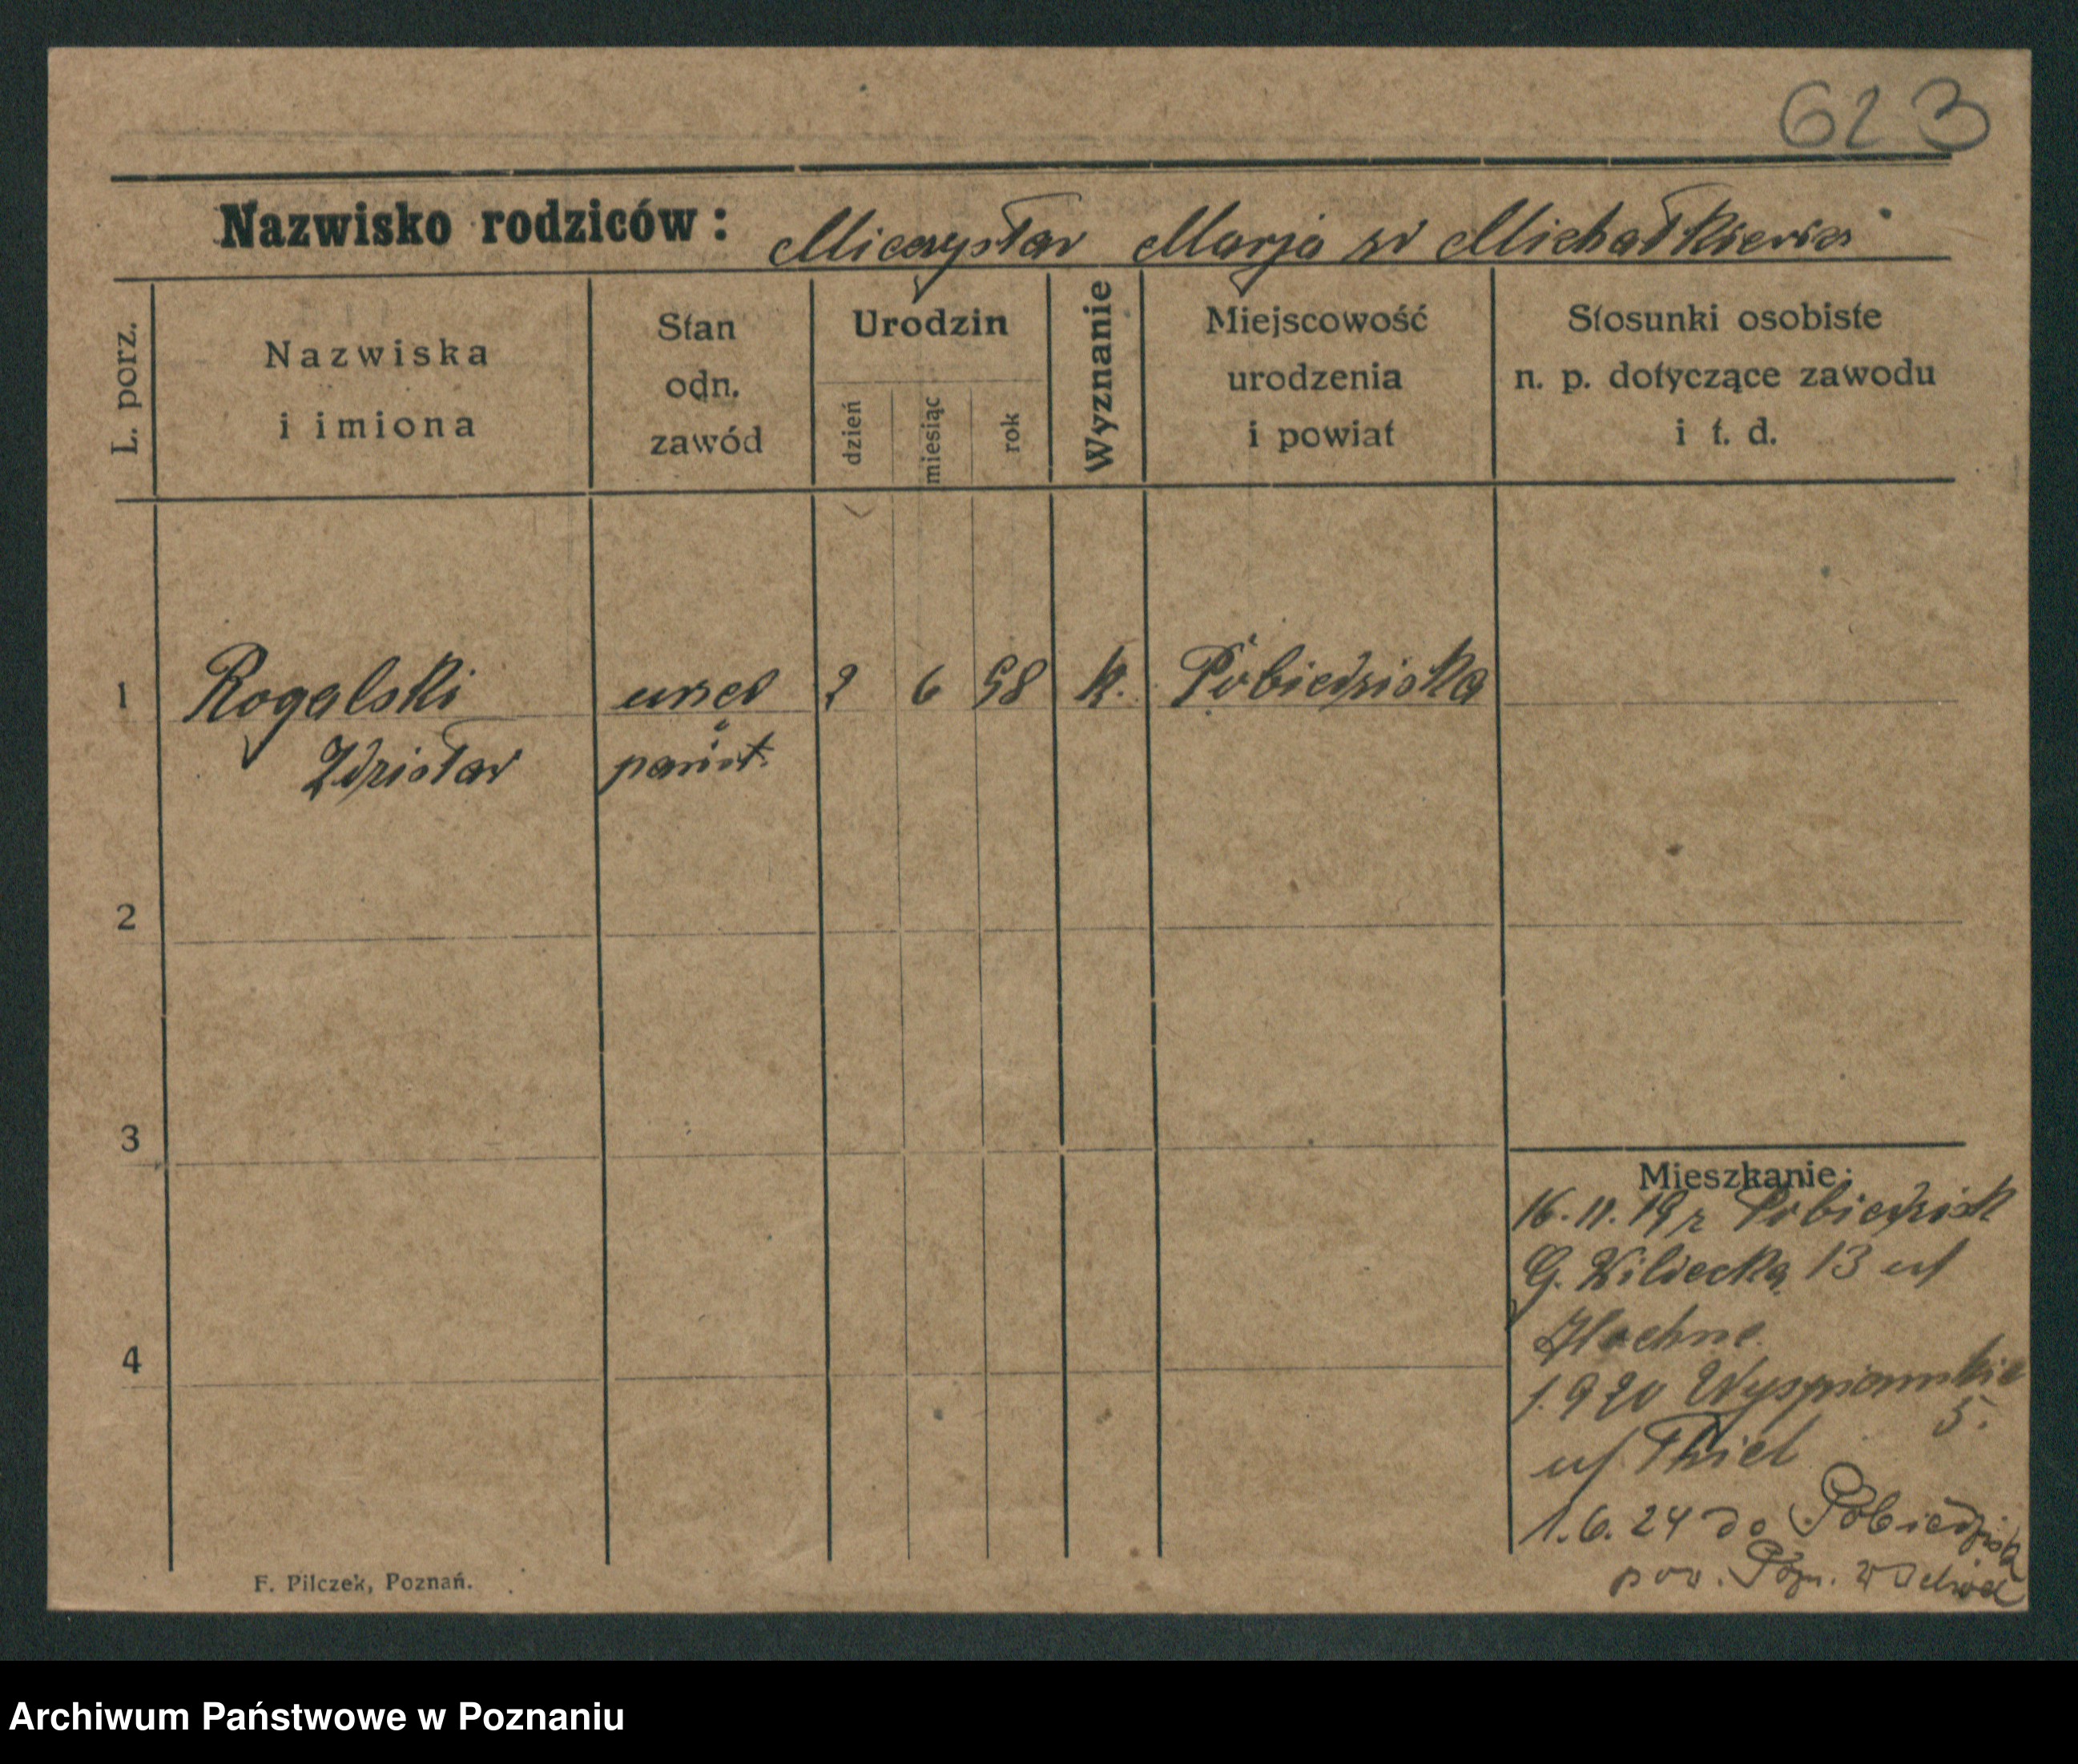 623
Nazwisko rodziców: Mieczysław Marja z d Michałkiewicz
L. porz.
Nazwiska
i imiona
Stan
odn.
zawód
Urodzin
dzień
miesiąc
rok
Wyznanie
Miejscowość
urodzenia
i powiat
Stosunki osobiste
n. p. dotyczące zawodu
i t. d.
1 Rogalski urzęd 2 6 98 k. Pobiedziska
Zdzisław państ.
2
3
4
Mieszkanie:
16.11.19 r Pobiedzisk
G. Wildecka 13 u/
1.9 20 Wyspiańskie
5.
u/ Thiel
1.6.24 do Pobiedzisk
pow. Pozn. Wschód
F. Pilczek, Poznań.
Archiwum Państwowe w Poznaniu